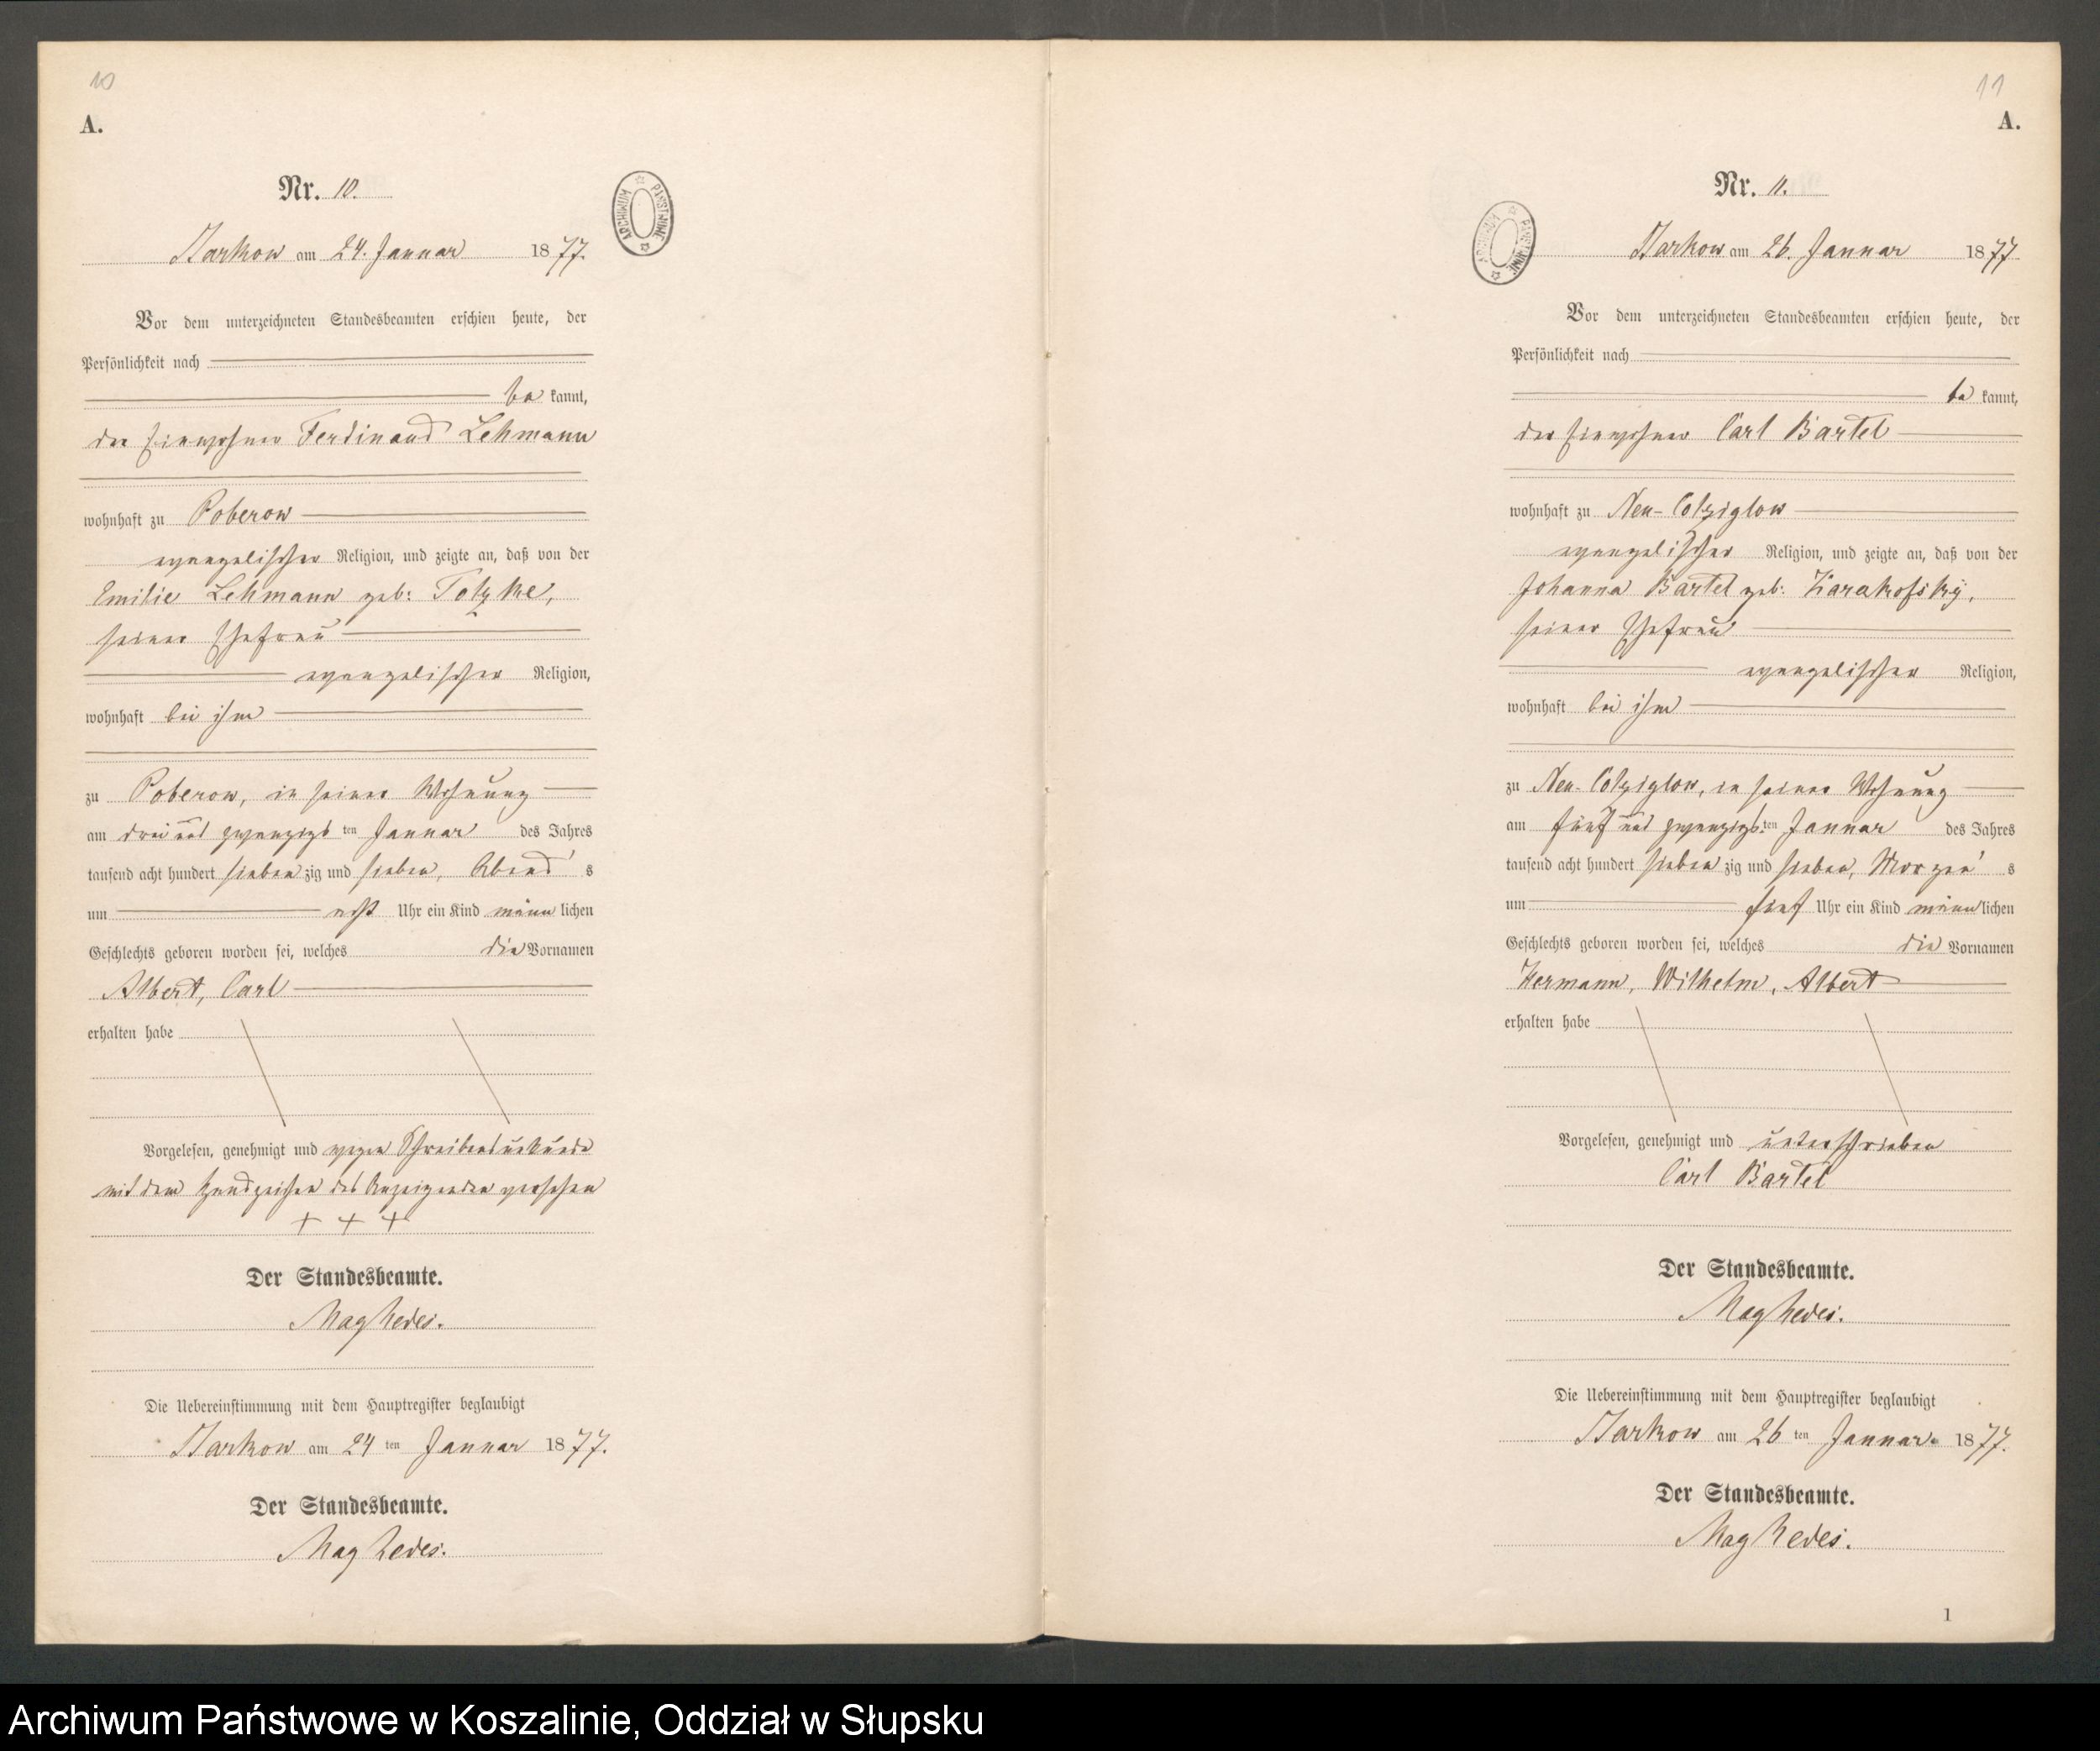 10
A.
Nr. 10.
ARCHIWUM PAŃSTWOWE
Starkow am 24. Januar 1877.
Vor dem unterzeichneten Standesbeamten erschien heute, der
Persönlichkeit nach
be kannt,
der Einwohner Ferdinand Lehmann
wohnhaft zu Poberow
evangelischer Religion, und zeigte an, daß von der
Emilie Lehmann geb: Totzke,
seiner Ehefrau
evangelischer Religion,
wohnhaft bei ihm
zu Poberow, in seiner Wohnung
am drei und zwanzigsten Januar des Jahres
tausend acht hundert sieben zig und sieben, Abend s
um acht Uhr ein Kind männ lichen
Geschlechts geboren worden sei, welches die Vornamen
Albert, Carl
erhalten habe
Vorgelesen, genehmigt und wegen Schreibensunkunde
mit dem Handzeichen des Anzeigenden versehen
+ + +
Der Standesbeamte.
Die Uebereinstimmung mit dem Hauptregister beglaubigt
Starkow am 24 ten Januar 1877.
Der Standesbeamte.
11
A.
Nr. 11.
ARCHIWUM PAŃSTWOWE
Starkow am 26. Januar 1877
Vor dem unterzeichneten Standesbeamten erschien heute, der
Persönlichkeit nach
be kannt,
der Einwohner Carl Bartel
wohnhaft zu Neu-Cotziglow
evangelischer Religion, und zeigte an, daß von der
Johanna Bartel geb:
seiner Ehefrau
evangelischer Religion,
wohnhaft bei ihm
zu Neu-Cotziglow, in seiner Wohnung
am fünf und zwanzigsten Januar des Jahres
tausend acht hundert sieben zig und sieben, Morgen s
um fünf Uhr ein Kind männ lichen
Geschlechts geboren worden sei, welches die Vornamen
Hermann, Wilhelm, Albert
erhalten habe
Vorgelesen, genehmigt und unterschrieben
Carl Bartel
Der Standesbeamte.
Die Uebereinstimmung mit dem Hauptregister beglaubigt
Starkow am 26 ten Januar 1877.
Der Standesbeamte.
1
Archiwum Państwowe w Koszalinie, Oddział w Słupsku